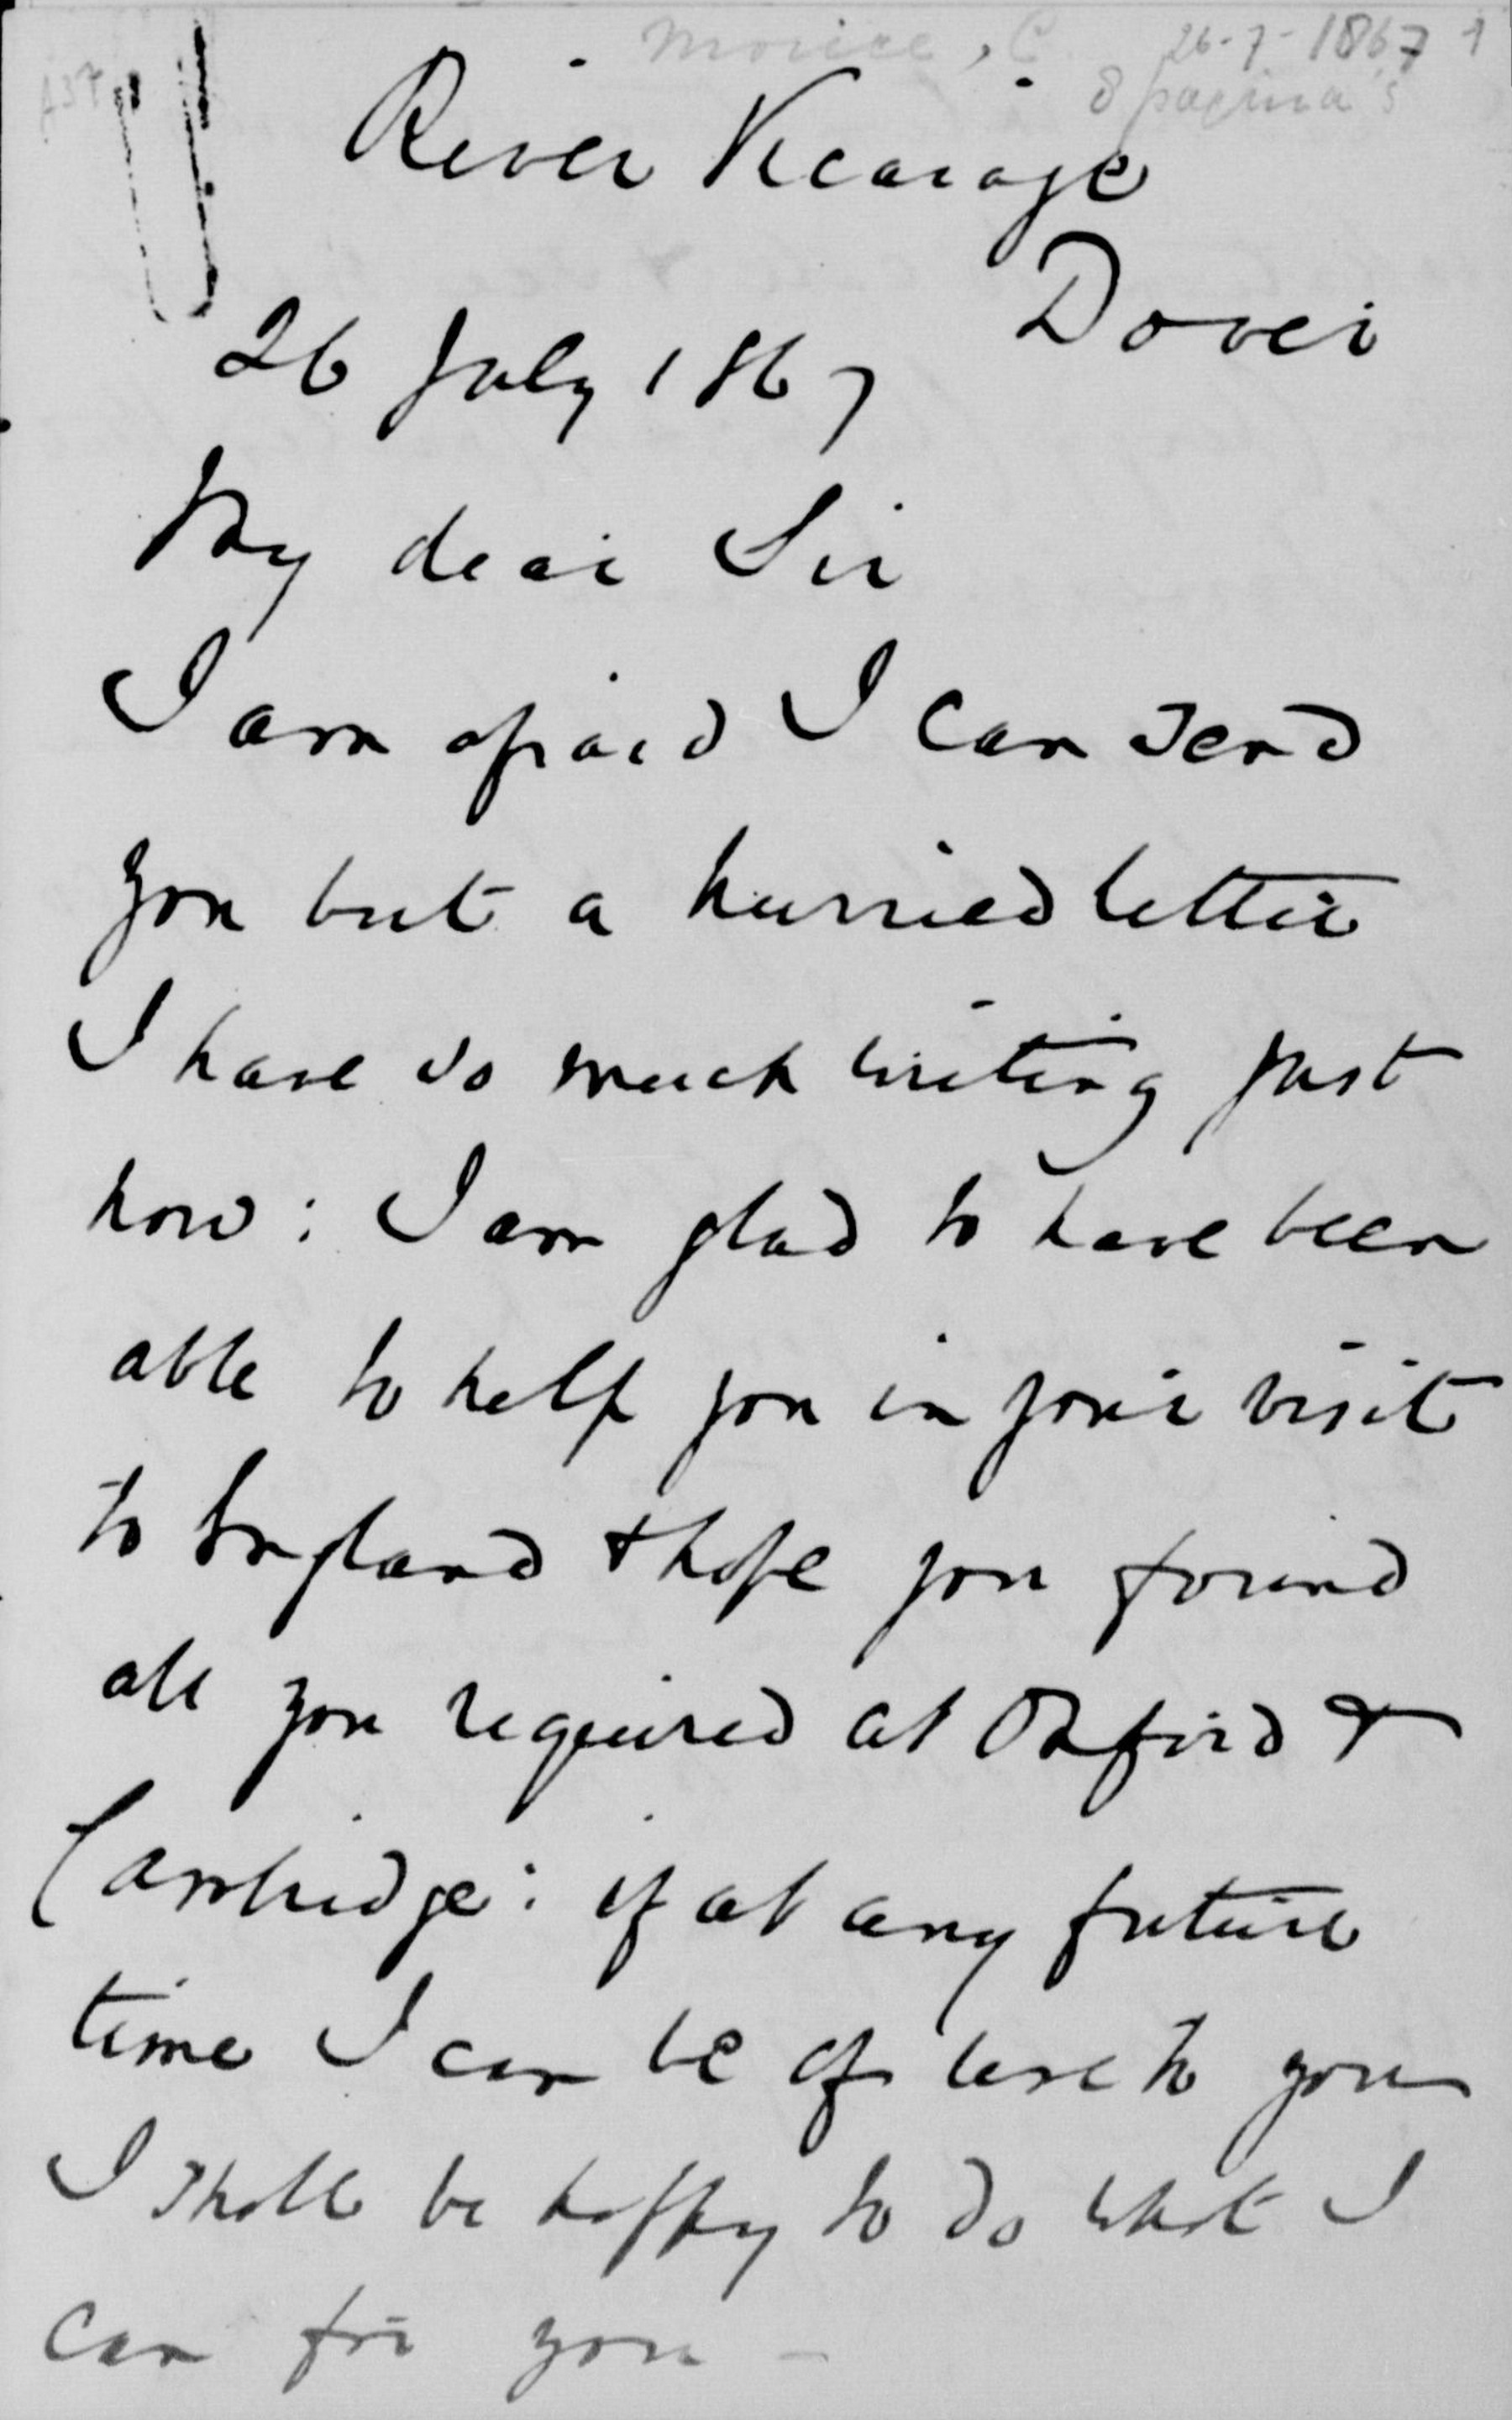 Morice, C 26-7-1867 1
8 pagina's
River Vicarage
Dover
26 July 1867
My dear Sir
I am afraid I can send
you but a hurried letter
I have so much writing just
now: I am glad to have been
able to help you in your visit
to England & hope you found
all you required at Oxford &
Cambridge: if at any future
time I can be of use to you
I shall be happy to do what I
can for you –